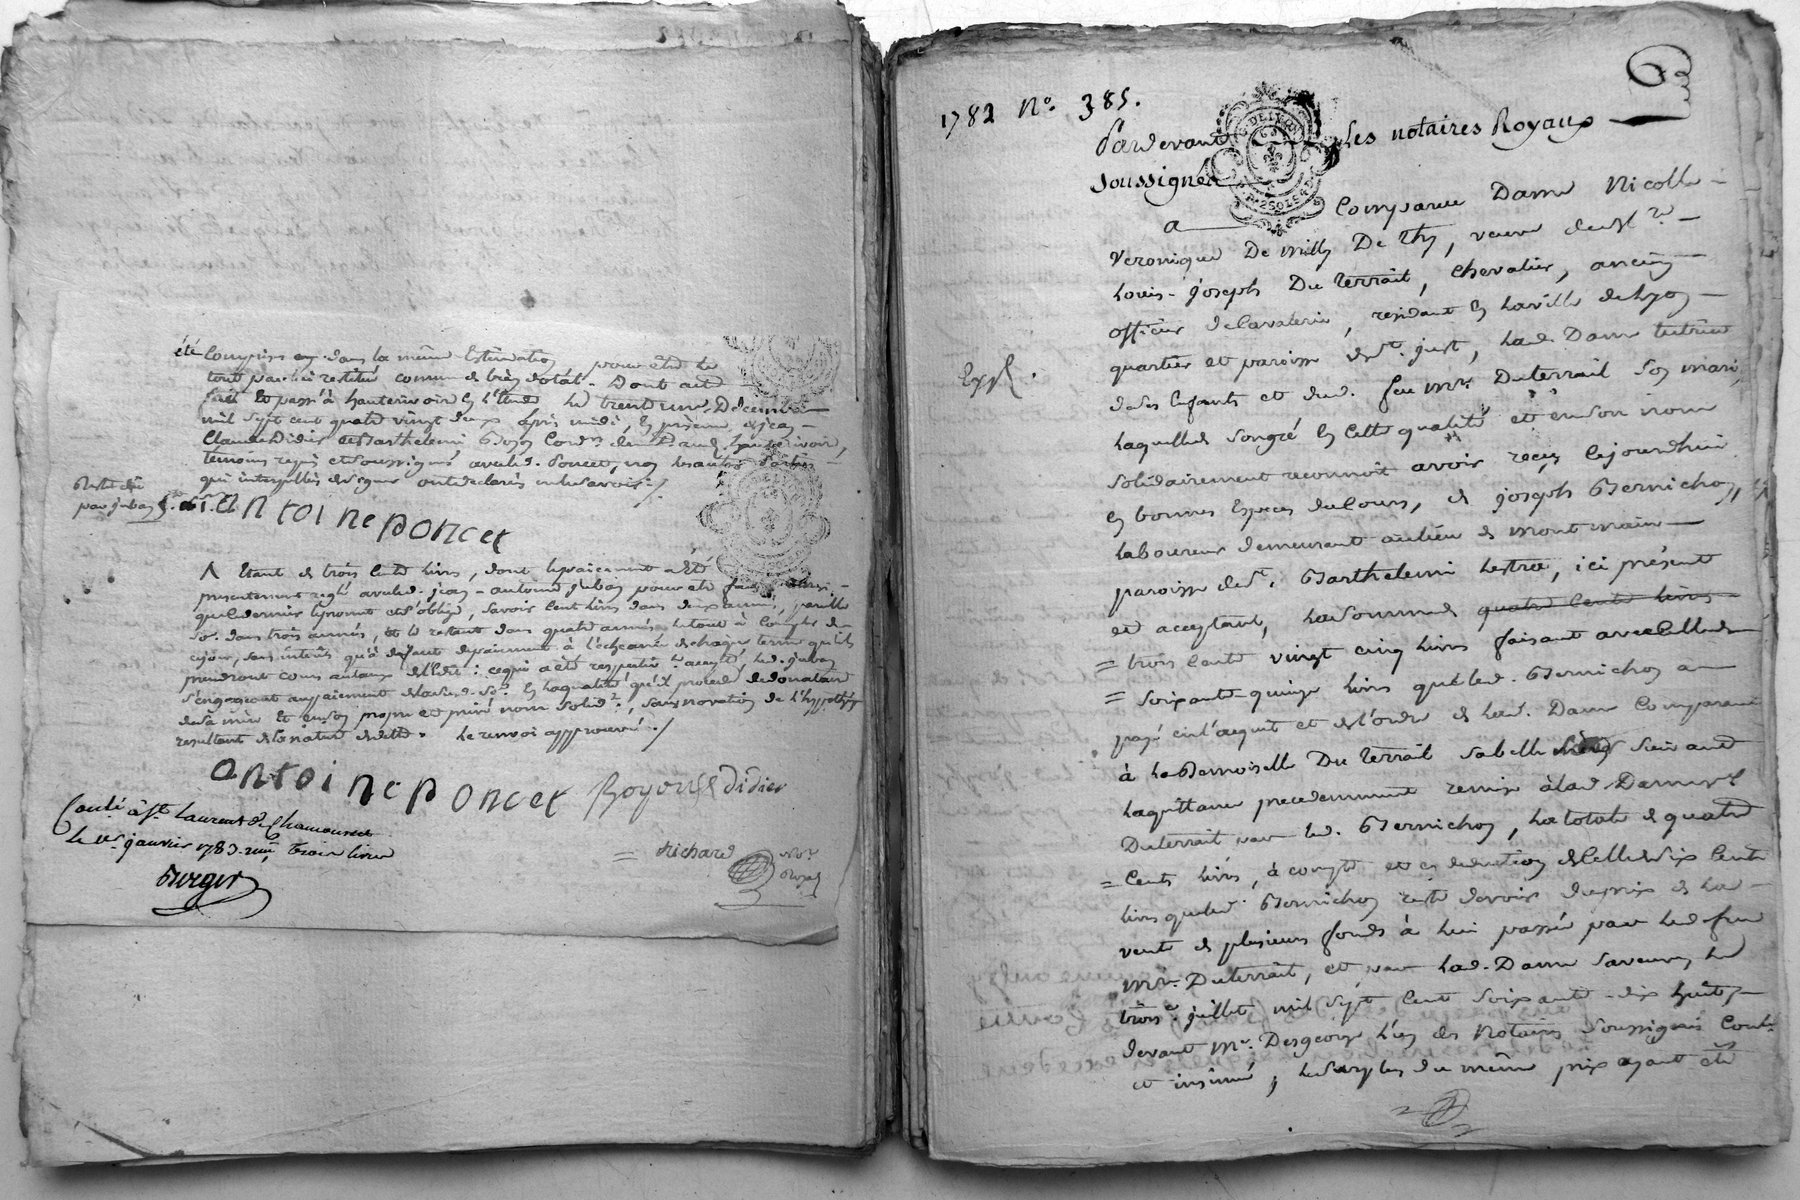 été compris en dans la même Estimation pour être le
tout par lui restitué comme de bien dotal. Dont acte
fait et passé à hauterivoire en l'Etude le trente un Décembre
mil sept cent quatre vingt deux après midi, en présence de jean
Claude Didier et Barthelemi Boyon Cord.rs dem.t aud. hauterivoire,
témoins requis et soussignés avec led. Poncet, non les autres parties
qui interpellées de signer ont déclaré ne le savoir ./.
Antoine poncet
Λ Etant de trois cents livres, dont le paiement a été
présentement réglé avec led. jean-antoine jubay pour être fait ainsi
que ce dernier le promet et s'oblige, savoir cent livres dans deux années, pareille
so. dans trois années, et le restant dans quatre années le tout à compter de
ce jour, sans intérêts qu'à défaut de paiement à l'échéance de chaque terme qu'ils
prendront cours au taux de l'édit: ce qui a été respective.t accepté, led. jubay
s'engageant au paiement de lad. so. en la qualité qu'il procède de donataire
de sa mère et en son propre et privé nom solid.t, sans novation de l'hypothèque
resultant de la nature de dette. le renvoi approuvé ./.
antoine poncet Boyon Didier
Conté à St. Laurent de Chamousset
le 1er janvier 1783. reçu trois livres
Burger
= Richard no.re Royal
1782 N.o 385.
Pardevant Les notaires Royaux
soussignés
a
Comparue Dame Nicolle
Veronique De Milly De Thy, veuve de M.re
Louis-joseph Du terrail, chevalier, ancien
officier de Cavalerie, residant en la ville de Lyon
quartier et paroisse de St. just, lad. Dame tutrice
de ses Enfants et dud. feu Mr. Duterrail son mari,
Expé.
laquelle de son gré en cette qualité et en son nom
solidairement reconnoit avoir reçu cejourdhui
en bonnes Espèces de Cours, de joseph Bernichon,
laboureur demeurant au lieu de montmain
paroisse de St. Barthelemi lestra, ici présent
et acceptant, la somme de quatre cents livres
= trois cents vingt cinq livres faisant avec Celle de
= soixante quinze livres que led. Bernichon a
payé en l'acquit et de l'ordre de lad. Dame Comparante
à la Demoiselle Du terrail sa belle sœur suivant
la quittance precedemment remise à lad. Dame
Duterrail par led. Bernichon, la totale de quatre
= Cents livres, à compte et en deduction de Celle de six Cents
livres que led. Bernichon reste devoir du prix de la
vente de plusieurs fonds à lui passée par led. feu
Mr. Duterrait, et par lad. Dame sa veuve, le
trois juillet mil sept Cent soixante-dix huit,
devant Mr. Desgeorge l'un des Notaires soussignés Cont.
et insinué, le surplus du même prix ayant été